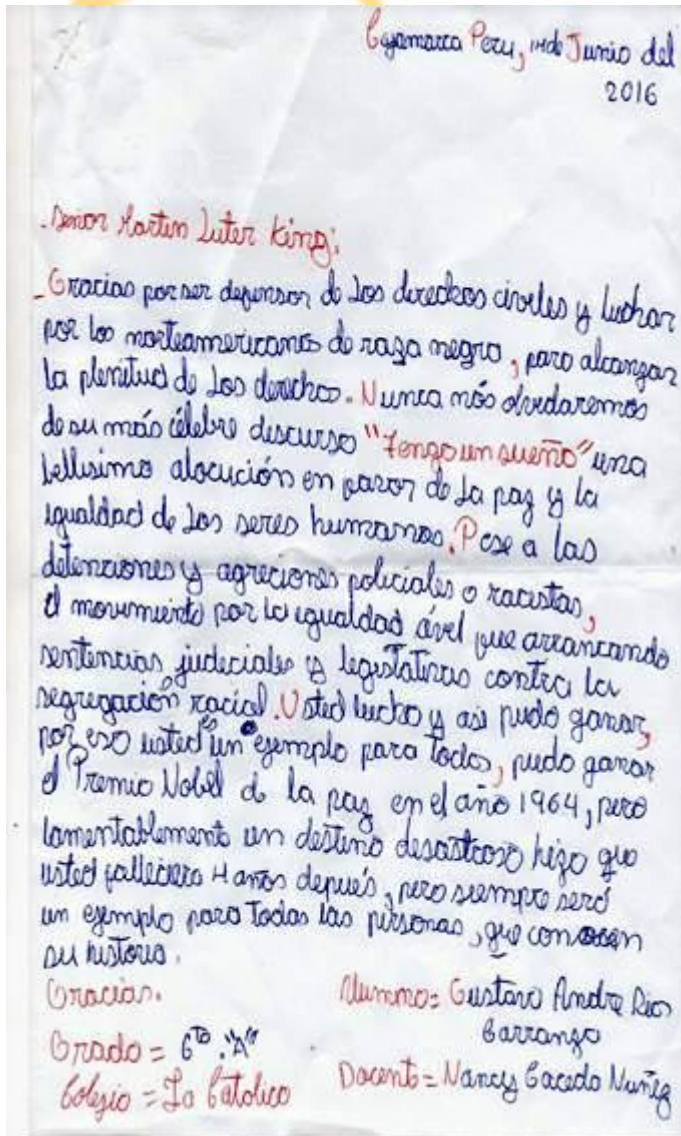 Cajamarca Peru, 14 de Junio del
2016
- Señor Martin Luter King:
- Gracias por ser defensor de los derechos civiles y luchar
por los norteamericanos de raza negra, para alcanzar
la plenitud de los derechos. Nunca nós olvidaremos
de su más célebre discurso "Tengo un sueño" una
bellisima alocución en favor de la paz y la
igualdad de los seres humanos. Pese a las
detenciones y agreciones policiales o racistas,
el movimiento por la igualdad civil fue arrancando
sentencias judeciales y legislativas contra la
segregación racial. Usted lucho y asi pudo ganar,
por eso usted es un ejemplo para todos, pudo ganar
el Premio Nobel de la paz en el año 1964, pero
lamentablemente un destino desastroso hizo que
usted falleciera 4 años depués, pero siempre será
un ejemplo para todas las personas, que conocen
su historia.
Gracias.
Alumno = Gustavo Andre Rios
Barranzo
Grado = 6to. "A"
Docente = Nancy Cacedo Nuñez
Colegio = La Catolica